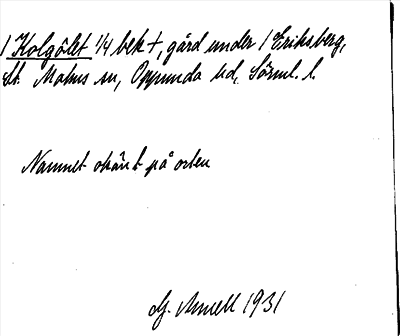 1 Kolgölet 1/4 bek +, gård under 1 Eriksberg,
St. Malms sn, Oppunda hd, Sörml. l.
Namnet okänt på orten
1931